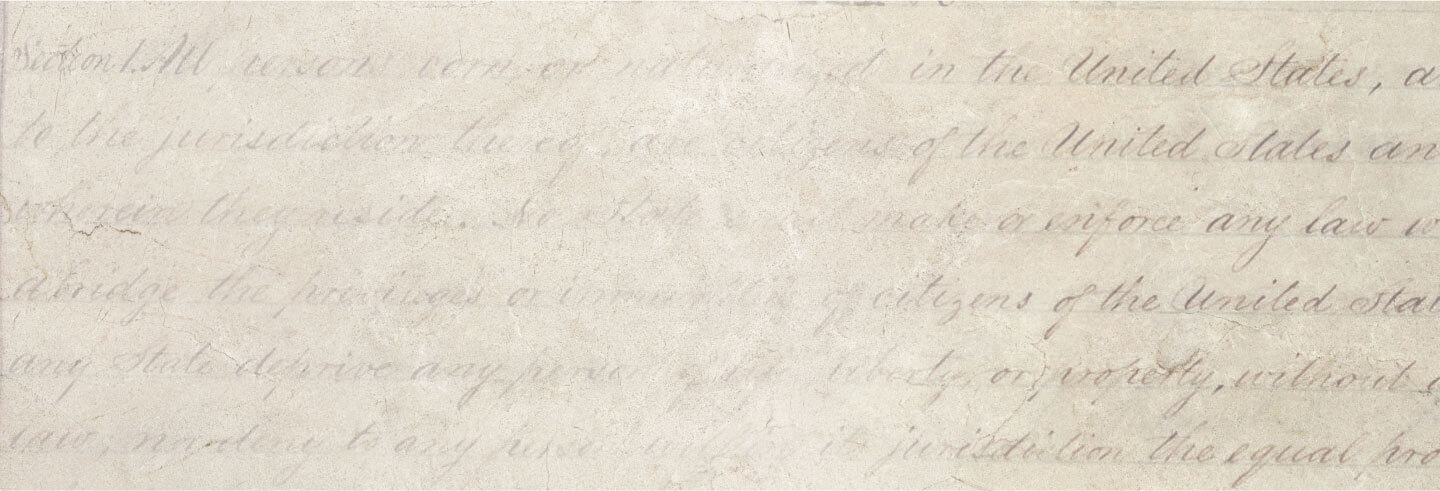 Section 1. All persons born or naturalized in the United States, a
to the jurisdiction thereof, are citizens of the United States an
wherein they reside. No State shall make or enforce any law w
abridge the privileges or immunities of citizens of the United Stat
any State deprive any person of life, liberty, or property, without
law; nor deny to any person within its jurisdiction the equal pro